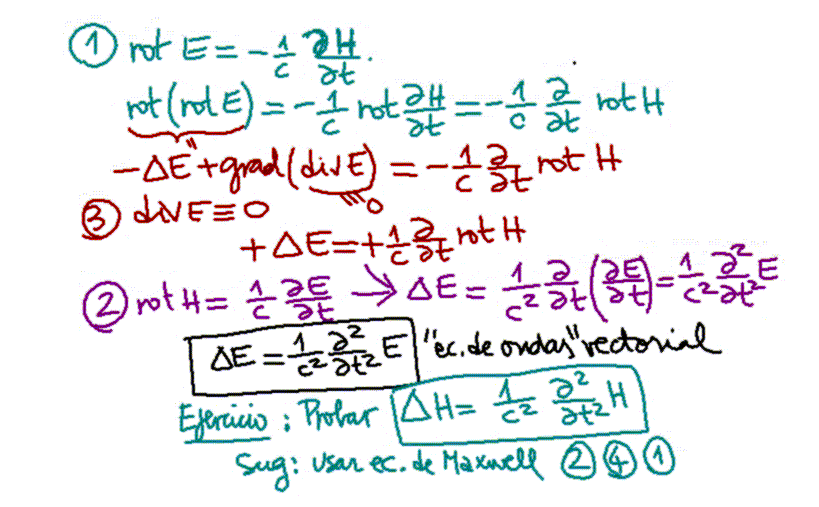 ① rot E = -1/c ∂H/∂t.
rot(rot E) = -1/c rot ∂H/∂t = -1/c ∂/∂t rot H
-ΔE + grad(div E) = -1/c ∂/∂t rot H
③ div E ≡ 0 ≡ 0
+ΔE = +1/c ∂/∂t rot H
② rot H = 1/c ∂E/∂t → ΔE = 1/c² ∂/∂t (∂E/∂t) = 1/c² ∂²/∂t² E
ΔE = 1/c² ∂²/∂t² E "ec. de ondas" vectorial
Ejercicio : Probar ΔH = 1/c² ∂²/∂t² H
Sug: usar ec. de Maxwell ② ④ ①